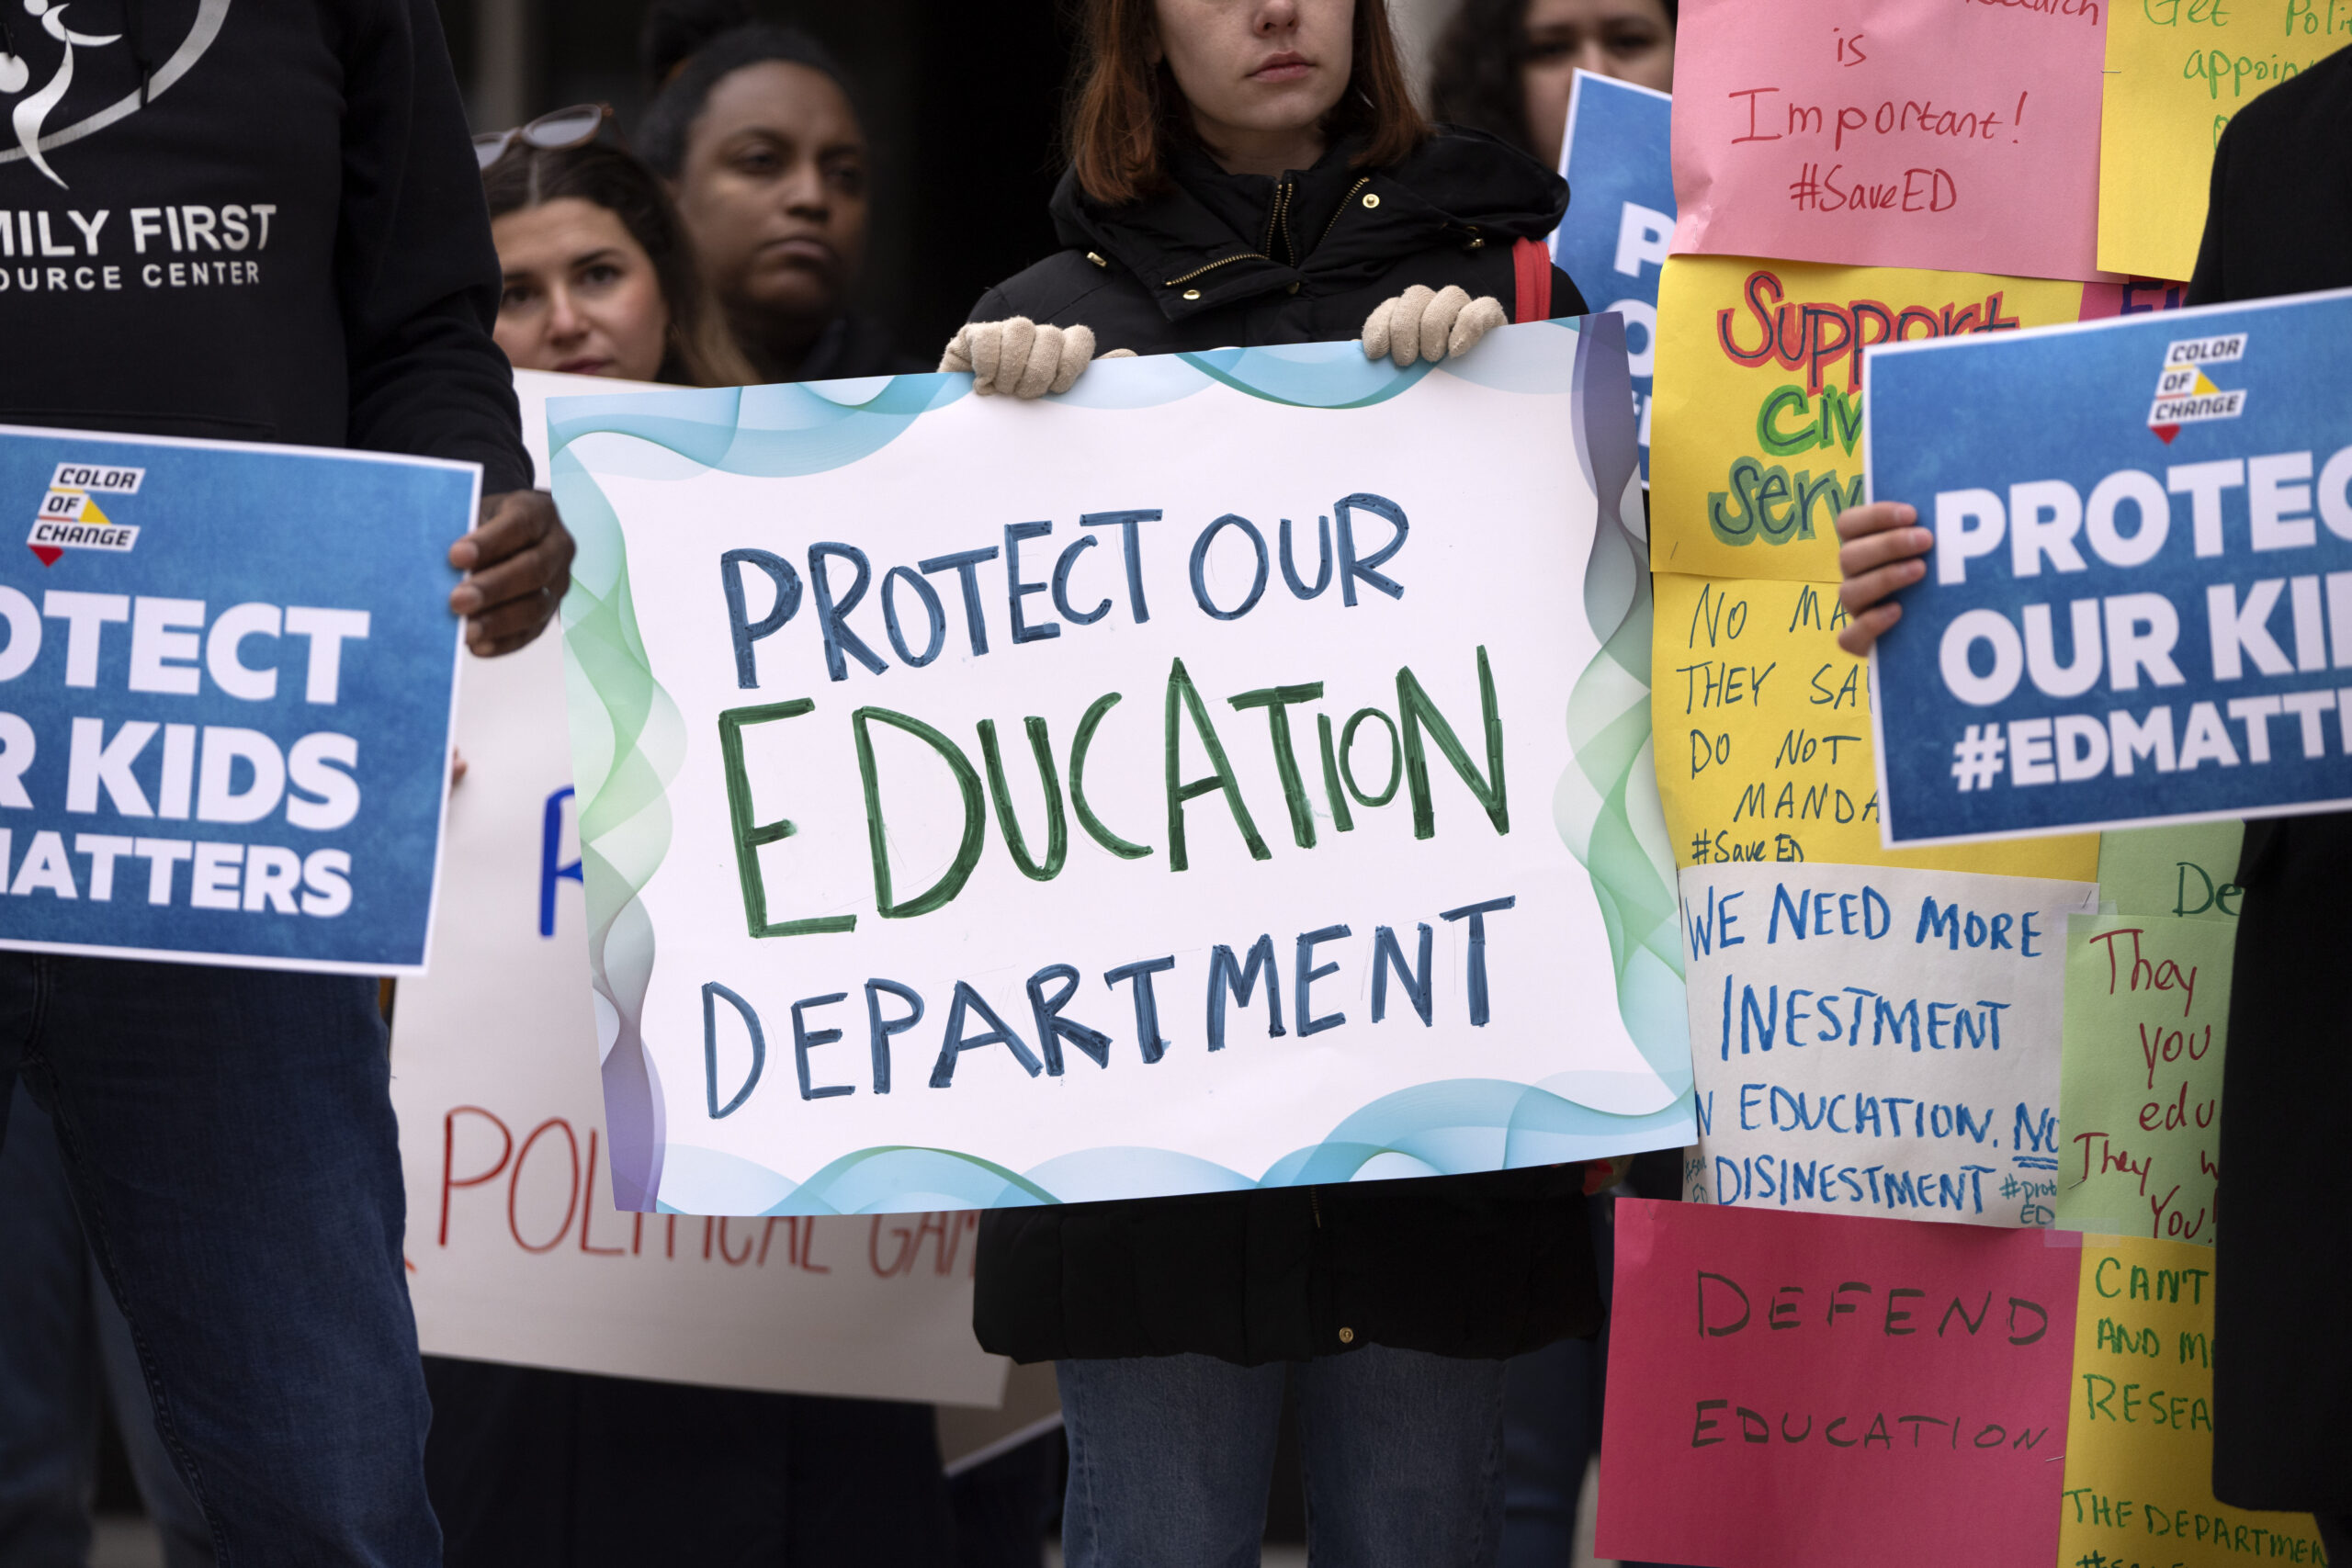 FIRST
OURCE CENTER
COLOR
OF
CHANGE
OTECT
R KIDS
MATTERS
POLITICAL GAM
PROTECT OUR
EDUCATION
DEPARTMENT
is
Important!
#SaveED
Get Poli
appoin
Support
Civ
Serv
NO MA
THEY SA
DO NOT
MANDA
#SaveED
WE NEED MORE
INESTMENT
N EDUCATION. NO
DISINESTMENT #prot
ED
De
They
you
edu
They w
You!
DEFEND
EDUCATION
CAN'T
AND M
RESEA
THE DEPARTMEN
COLOR
OF
CHANGE
PROTEC
OUR KI
#EDMATT